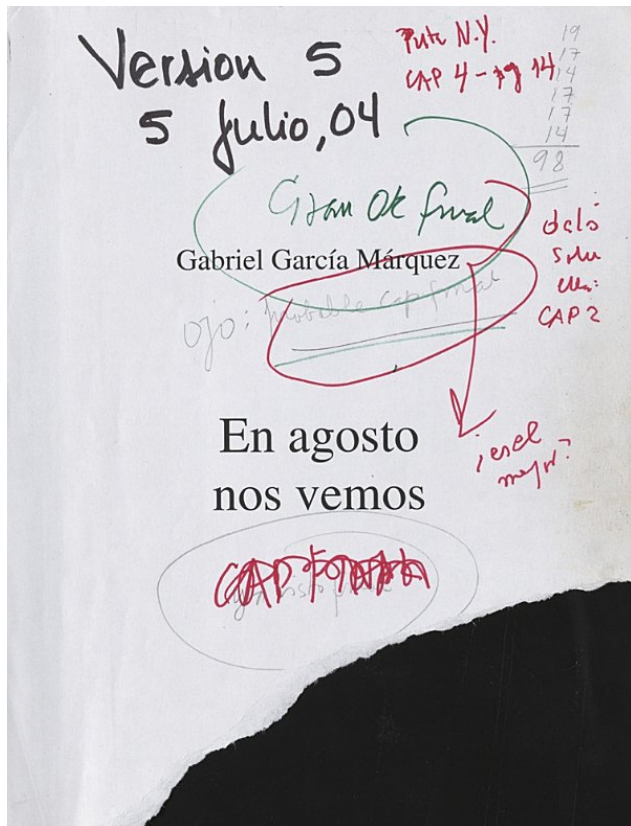 Version 5
5 Julio, 04
Puta N.Y.
CAP 4 - pg 14
19
17
14
17
17
14
98
Gran OK final
Gabriel García Márquez
ojo: probable cap final
CAP 2
¿es el
mejor?
En agosto
nos vemos